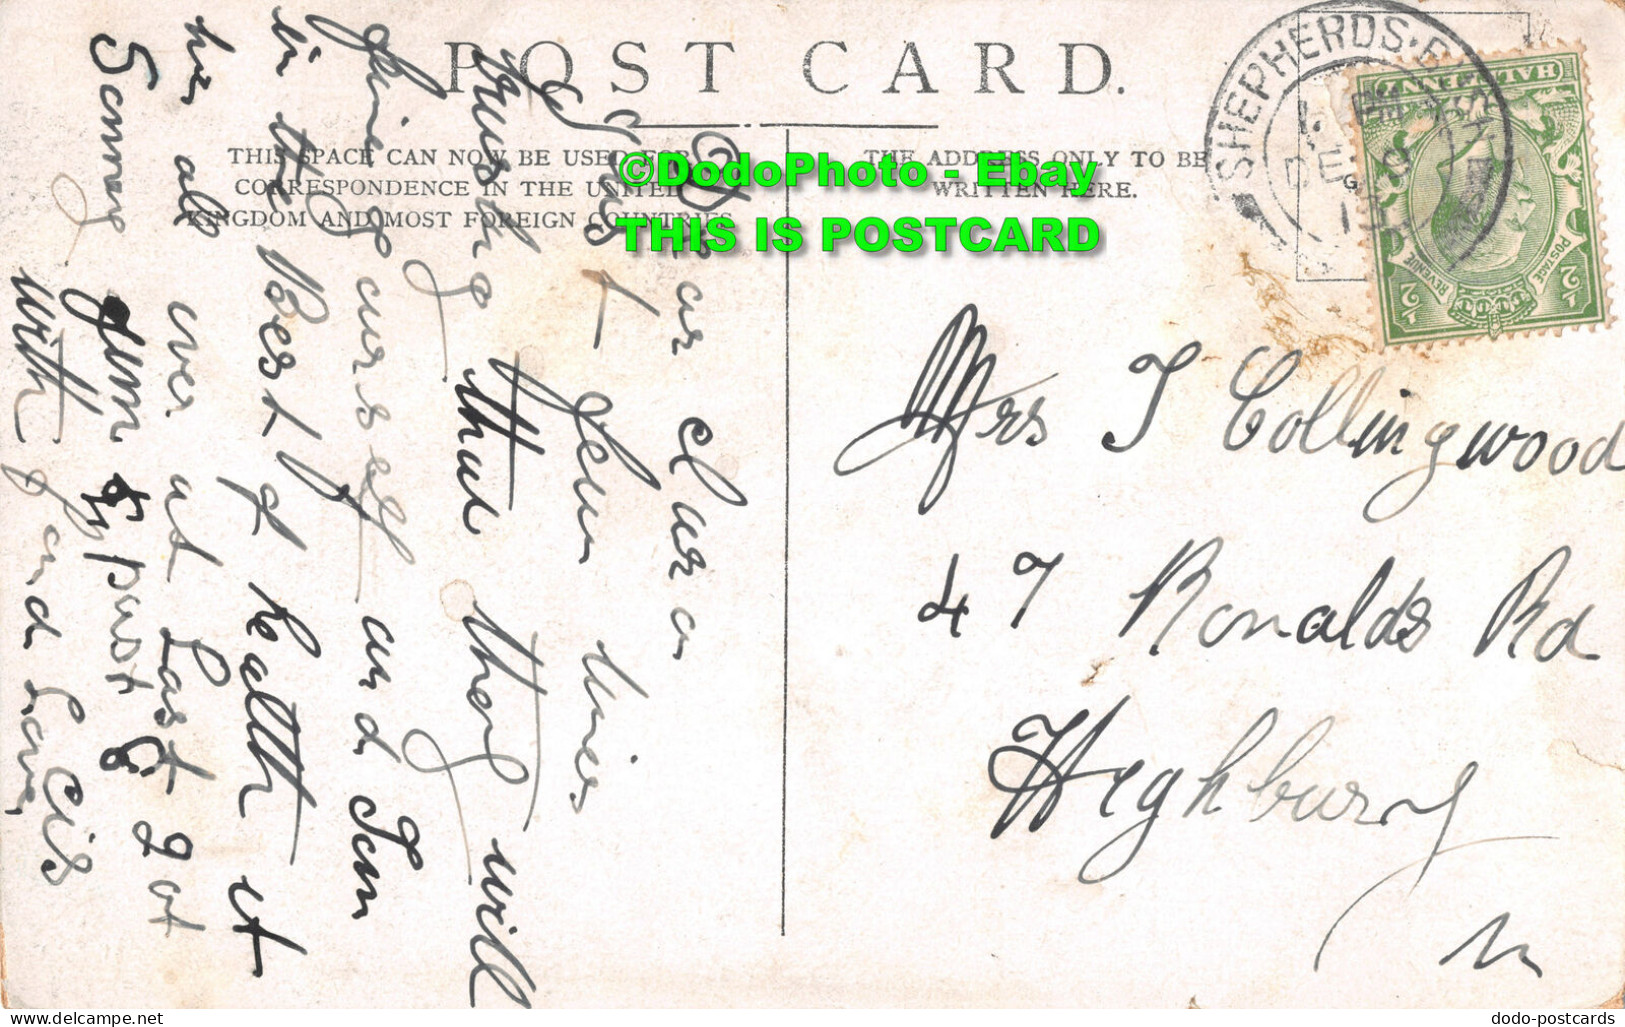 POST CARD.
THIS SPACE CAN NOW BE USED FOR
CORRESPONDENCE IN THE UNITED
KINGDOM AND MOST FOREIGN COUNTRIES.
THE ADDRESS ONLY TO BE
WRITTEN HERE.
©DodoPhoto - Ebay
THIS IS POSTCARD
SHEPHERDS·BUSH
PM
HALFPENNY
POSTAGE
REVENUE
½
½
Dear Clara
Just a few lines
trusting that they will
find yourself and Tom
in the Best of health it
has all over at Last got
Sammy
with fond Love, Cis
Mrs T Collingwood
47 Ronalds Rd
Highbury
N
dodo-postcards